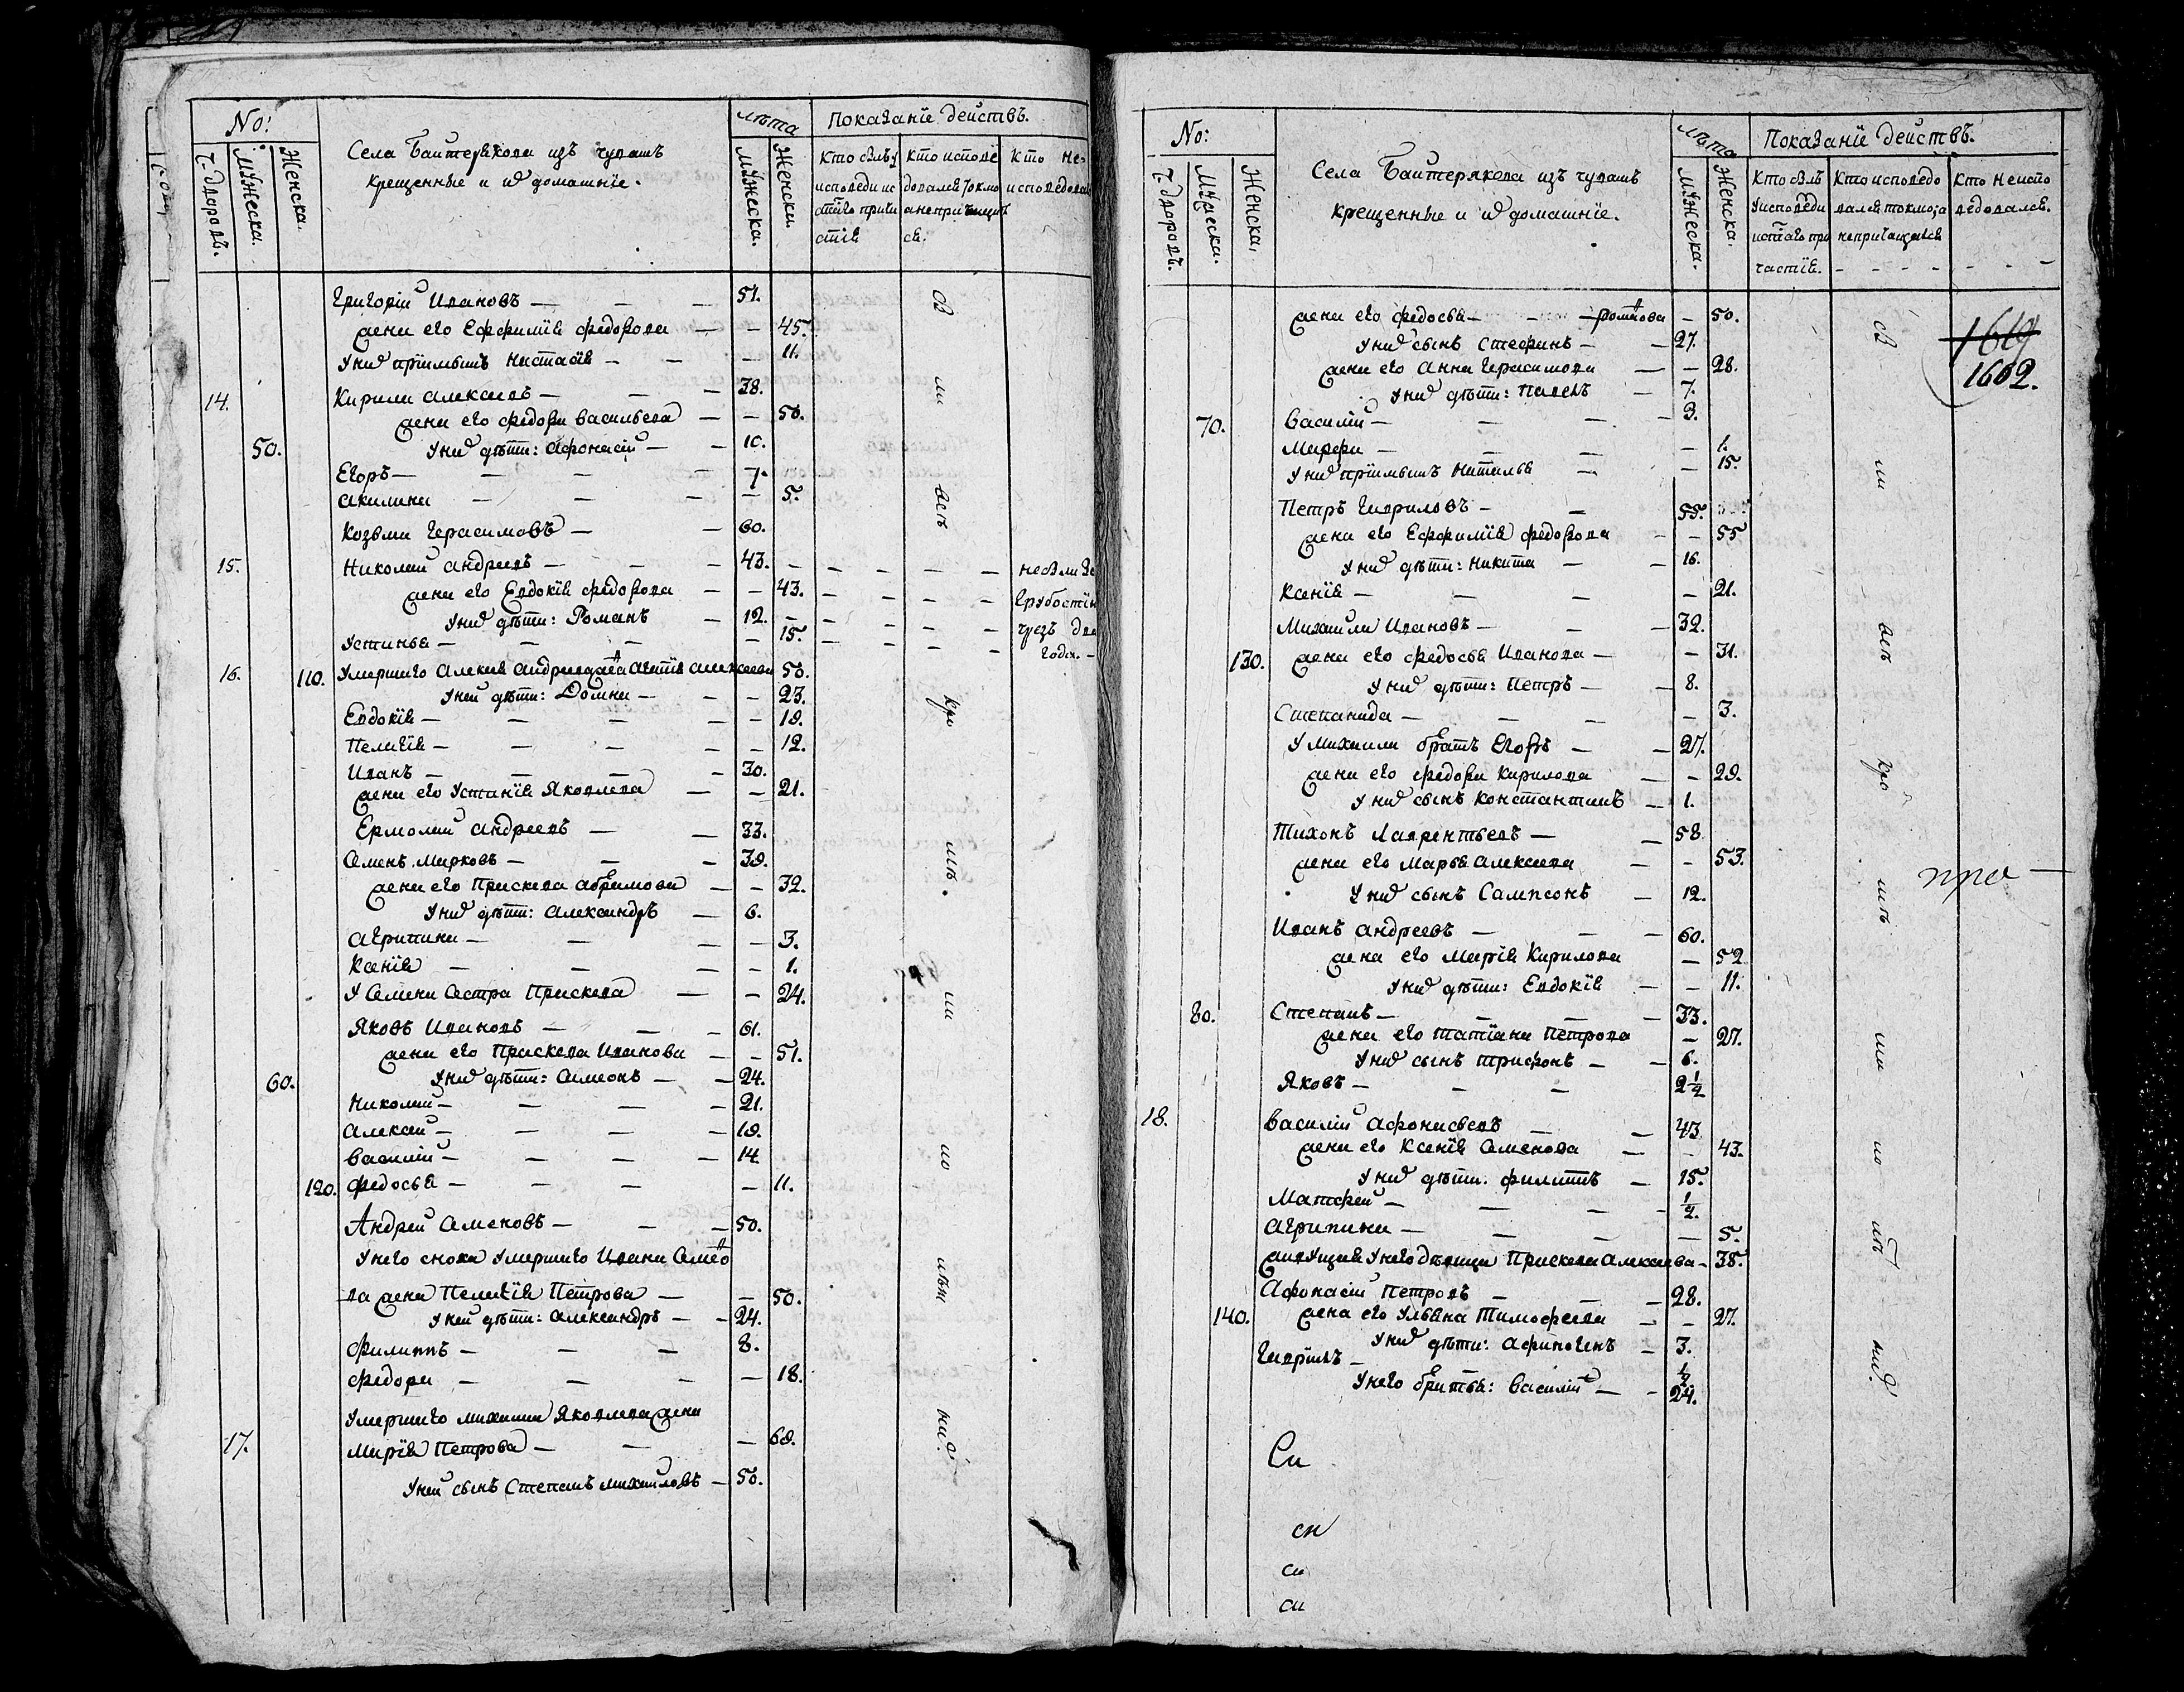 No:
Села Баитерякова изъ чувашъ
крещенные и ихъ домашнïе.
лѣта
Показанïе действъ.
Ч: дворовъ.
Мужеска.
Женска.
Мужеска.
Женска.
Кто былъ у
исповеди и с
стаго прича
стïя
Кто испове
довался токмо
а непричащал
ся:
Кто не
исповедовал
Григорïй Ивановъ — 51.
жена его Евфимïя федорова — 45.
У них прïимышъ Настасïя — 11.
14. Кирила алексеевъ — 38.
жена его федора васильева — 50.
50. У них дѣти: афонасïй — 10.
Егоръ — 7.
акилина — 5.
Козьма Герасимовъ — 60.
15. Николай андреевъ — 43. — небыли за
жена его Евдокïя федорова — 43. — грубостïю
У них дѣти: Романъ — 12. — чрезъ два
Устинья — 15. — года. —
16. 110. Умершаго Алексея Андреева жена агафïя алексеева 50.
У ней дѣти: Домна — 23.
Евдокïя — 19.
Пелагïя — 12.
Иванъ — 30.
жена его Устинïя Яковлева — 21.
Ермолай андреевъ — 33.
Семенъ Марковъ — 39.
жена его Праскева абрамова — 32.
У них дѣти: александръ — 6.
агрипина — 3.
Ксенïя — 1.
У Семена Сестра Праскева — 24.
Яковъ Ивановъ — 61.
жена его Праскева Иванова — 51.
60. У них дѣти: Симеонъ — 24.
Николай — 21.
алексей — 19.
василïй — 14.
120. федосья — 11.
Андрей Семеновъ — 50.
У него сноха Умершаго Ивана Семено
ва жена Пелагïя Петрова — 50.
У ней дѣти: александръ — 24.
филиппъ — 8.
федора — 18.
Умершаго михаила Яковлева жена
17. Марïя Петрова — 69.
У ней сынъ Степанъ михайловъ — 50.
No:
Села Баитерякова изъ чувашъ
крещенные и ихъ домашнïе.
лѣта
Показанïе действъ.
Ч: дворовъ.
Мужеска.
Женска.
Мужеска.
Женска.
Кто былъ
У исповеди
и стаго при
частïя.
Кто исповедо
вался токмо, а
непричащался
Кто неиспо
ведовался.
жена его федосья — Романова — 50.
1619
1602.
У них сынъ Стефанъ — 27.
жена его Анна Герасимова — 28.
У них дѣти: Павелъ — 7.
70. Василïй — 3.
Марфа — 1.
У них прïимышъ Наталья — 15.
Петръ Гавриловъ — 55.
жена его Евфимïя федорова — 55
У них дѣти: Никита — 16.
Ксенïя — 21.
Михаила Ивановъ — 32.
130. жена его федосья Иванова — 31.
У них дѣти: Петръ — 8.
Степанида — 3.
У михаила братъ Егоръ — 27.
жена его федора Кирилова — 29.
У них сынъ константинъ — 1.
Тихонъ Лаврентьевъ — 58
жена его Марья алексеева — 53.
У них сынъ Сампсонъ — 12.
Иванъ андреевъ — 60.
жена его Марïя Кирилова — 52
У них дѣти: Евдокïя — 11.
80. Степанъ — 33.
жена его татïана Петрова — 27.
У них сынъ трифонъ — 6.
Яковъ — 2 1/2
18. василïй афонасьевъ — 43
жена его Ксенïя Семенова — 43.
У них дѣти: филиппъ — 15.
Матфей — 1/2.
агрипина — 5.
живущая У него дѣвица Праскева Алексеева — 38.
Афонасïй Петровъ — 28.
140. жена его Ульяна Тимофеева — 27.
У них дѣти: афиногенъ — 3.
Гаврïилъ — 1/2
У него братья: василïй — 24.